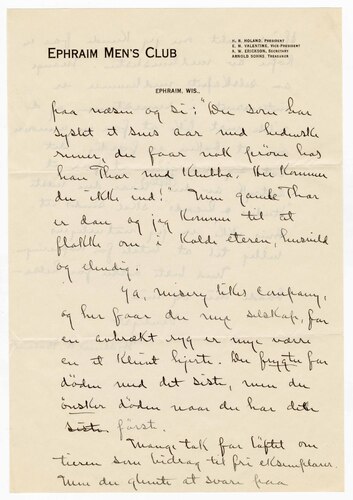 H. R. HOLAND, PRESIDENT
E. N. VALENTINE, VICE-PRESIDENT
A. W. ERICKSON, SECRETARY
ARNOLD SOHNS, TREASURER
EPHRAIM MEN'S CLUB
EPHRAIM, WIS.,
paa næsen og si: "Du som har
syslet i snes aar med hedenske
runer, du faar nok prøve hos
han Thor med Klubba. Her kommer
du ikke ind!" Men gamle Thor
er død og jeg kommer til at
flakke om i kolde eteren, husvild
og elendig.
Ja, misery likes company,
og her faar du mye selskap, for
en knækt ryg er mye værre
en et klemt hjerte. Du frygter for
døden med det siste, men du
ønsker døden naar du har det
siste først.
Mange tak for løftet om
tieren som bidrag til fri eksemplarer.
Men du glemte at svare paa